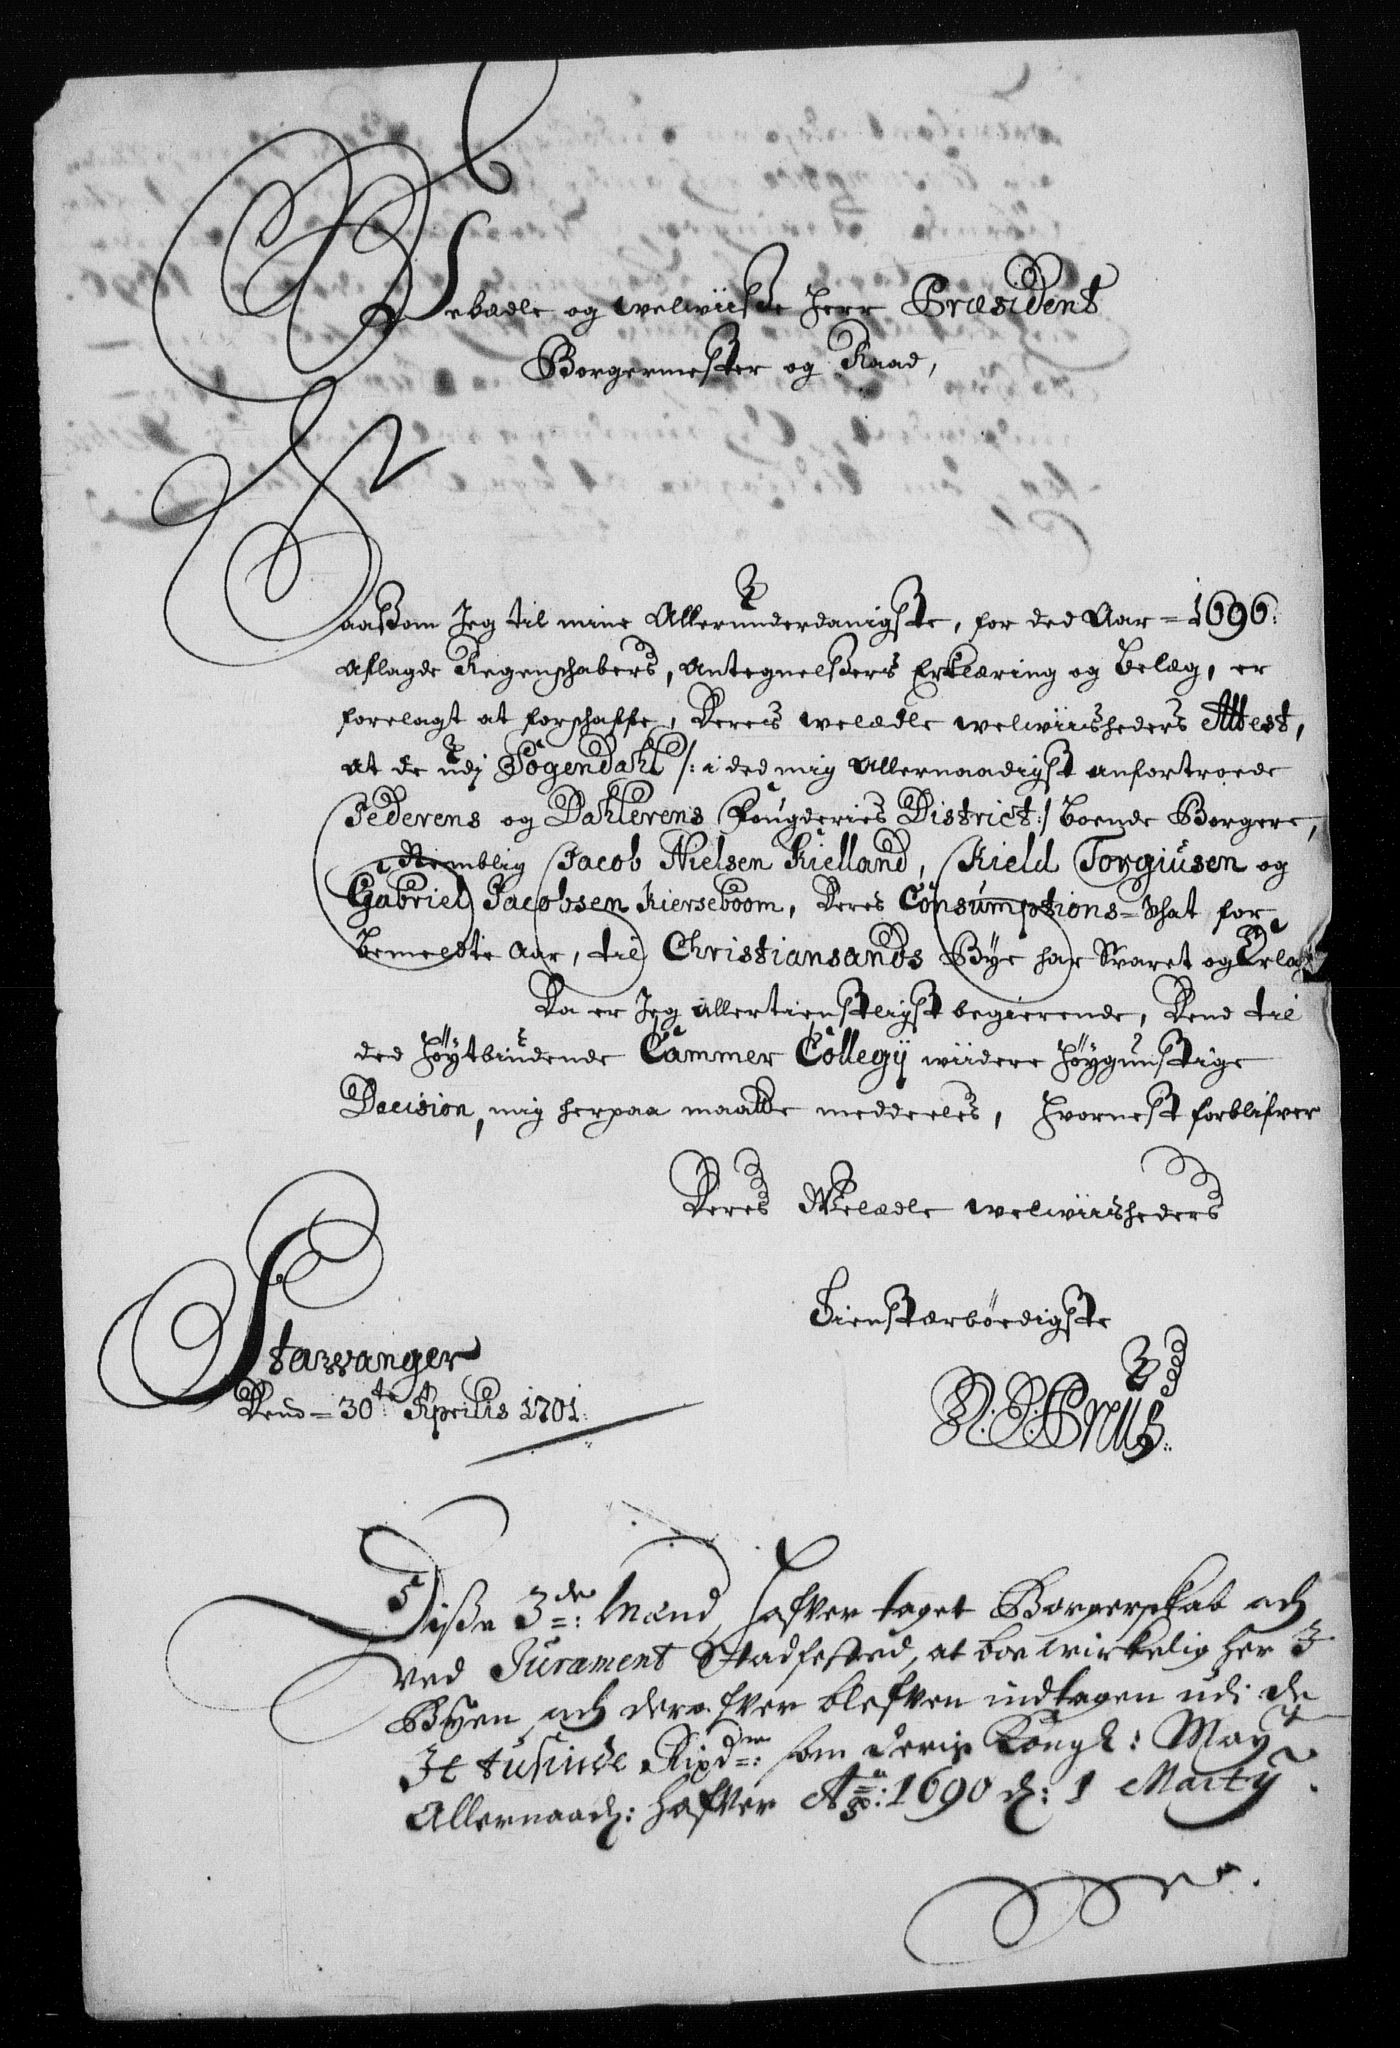 Welædle og welwiise Herr Præsident
Borgermester og Raad,
Saasom Jeg til mine Allerunderdanigste, for ded Aar = 1696:
Aflagde Regenschabers, Antegnelsers Erklæring og belæg, er
forelagt at forschaffe, Deres welædle welwiisheders Attest,
at de udj Sogendahl /: i ded mig Allernaadigst anfortroede
Jederens og Dahlerens Fougderies District :/ boende Borgere,
Nemblig Jacob Nielsen Kielland, Kield Torgiusen og
Gabriel Jacobsen Kierseboom, Deres Consumptions-Schat for
bemeldte Aar, til Christiansands Bye har Svaret og Erlagt
Da er Jeg allertienstligst begierende, Dend til
ded Höytbiudende Cammer Collegij wiidere Höygunstige
Decision, mig herpaa maatte meddeeles, Hvornest forblifver
Deres Welædle welwiisheders
Tienstærbödigste
Stavvanger
Dend = 30te Aprilis 1701:
Disse 3de: Mænd, hafver taget Borgerskab och
ved Jurament Stadfested, at boe wirkelig her I
Byen, och derofver blefven indtagen udi de
It tusinde Rixdr: som deris Kongl: May
Allernaad: hafver Ao: 1690 d: 1 Martij